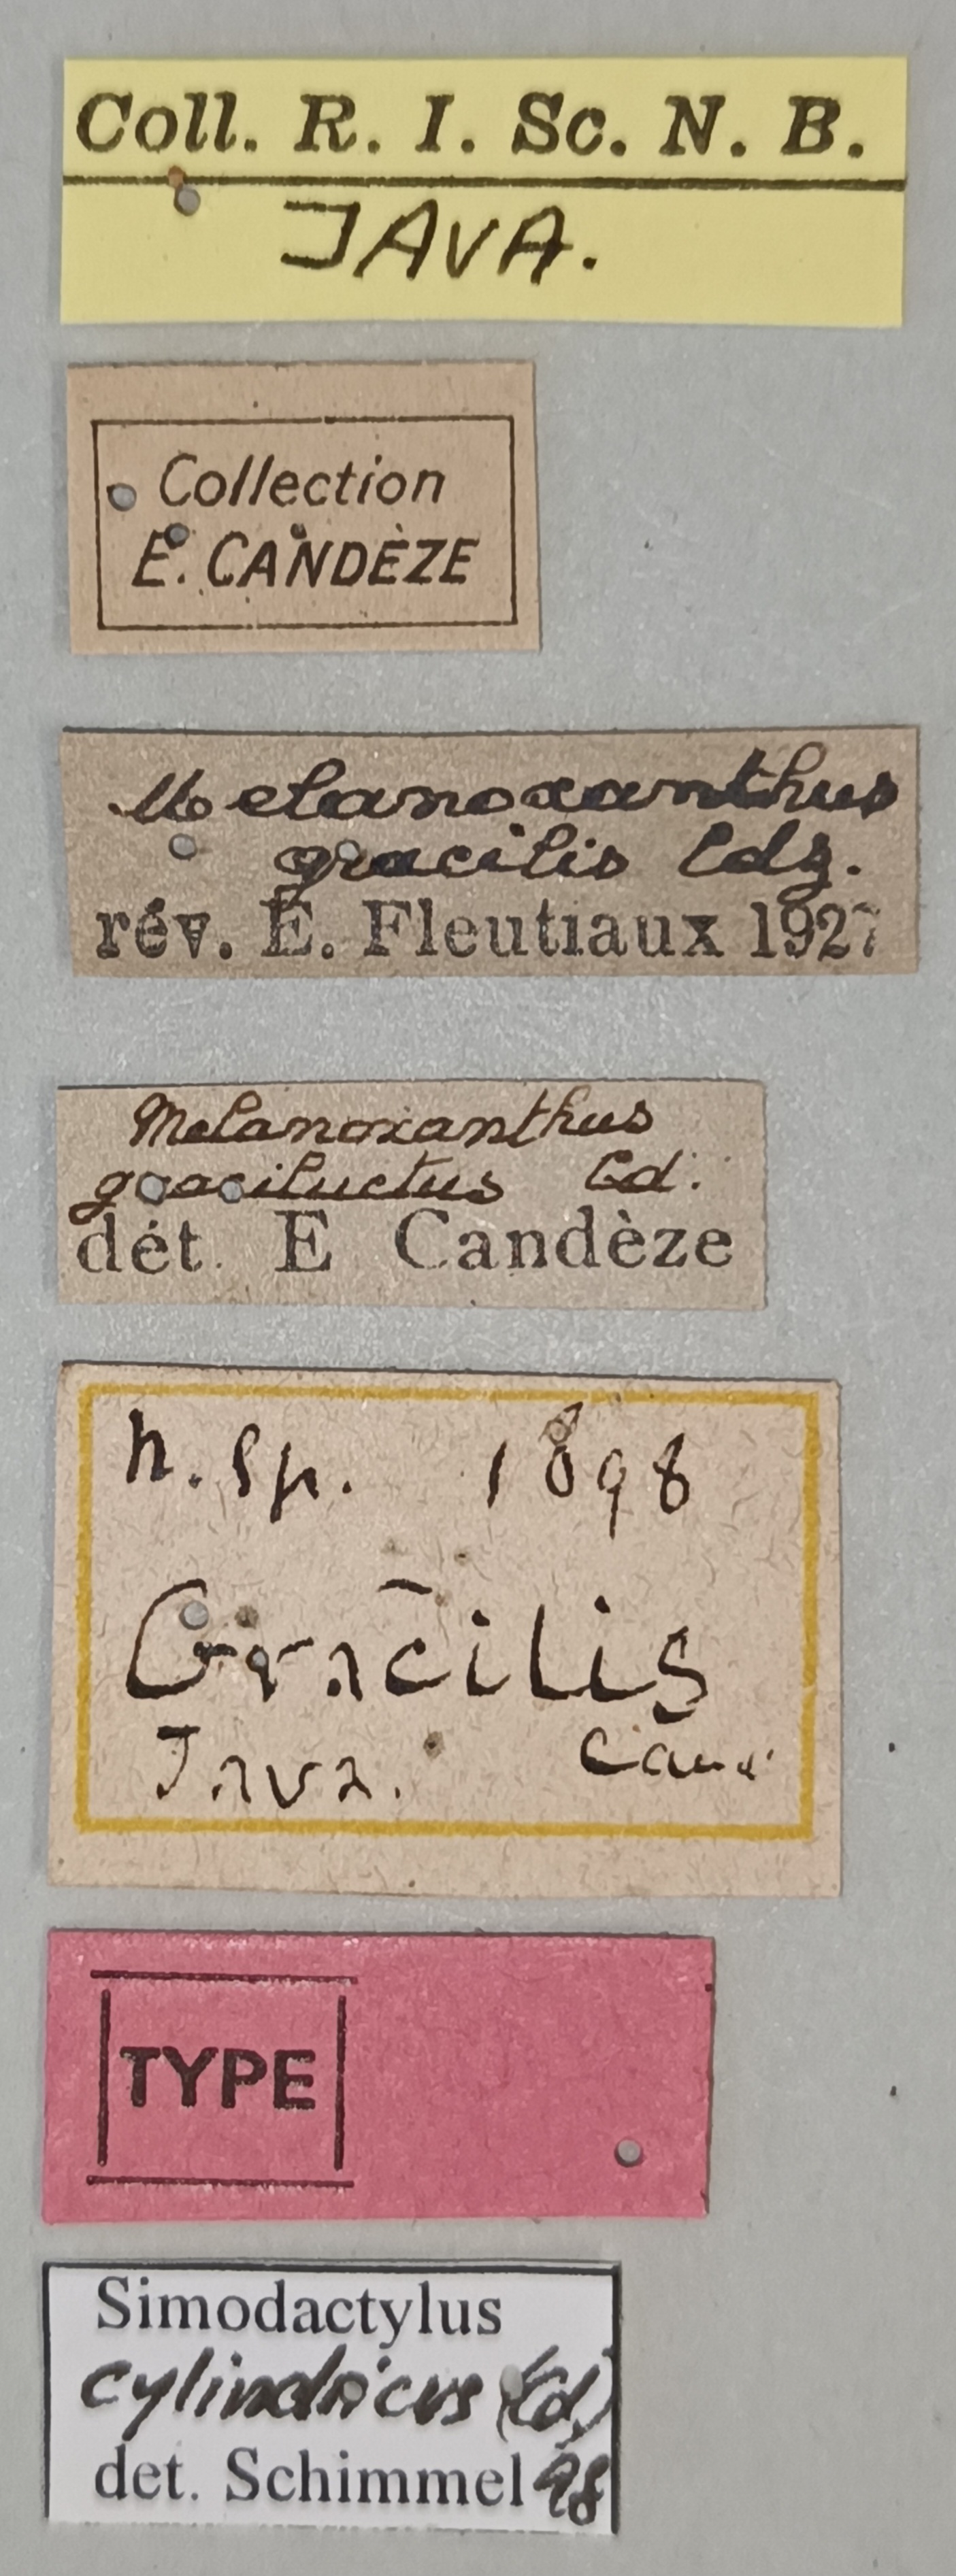 Coll. R. I. Sc. N. B.
JAVA.
Collection
E. CANDÈZE
Melanoxanthus
gracilis Cdz.
rév. E. Fleutiaux 1927
Melanoxanthus
Cd.
dét. E Candèze
n. sp. 1898
Gracilis
Java.
TYPE
Simodactylus
cylindricus (Cd)
det. Schimmel 98